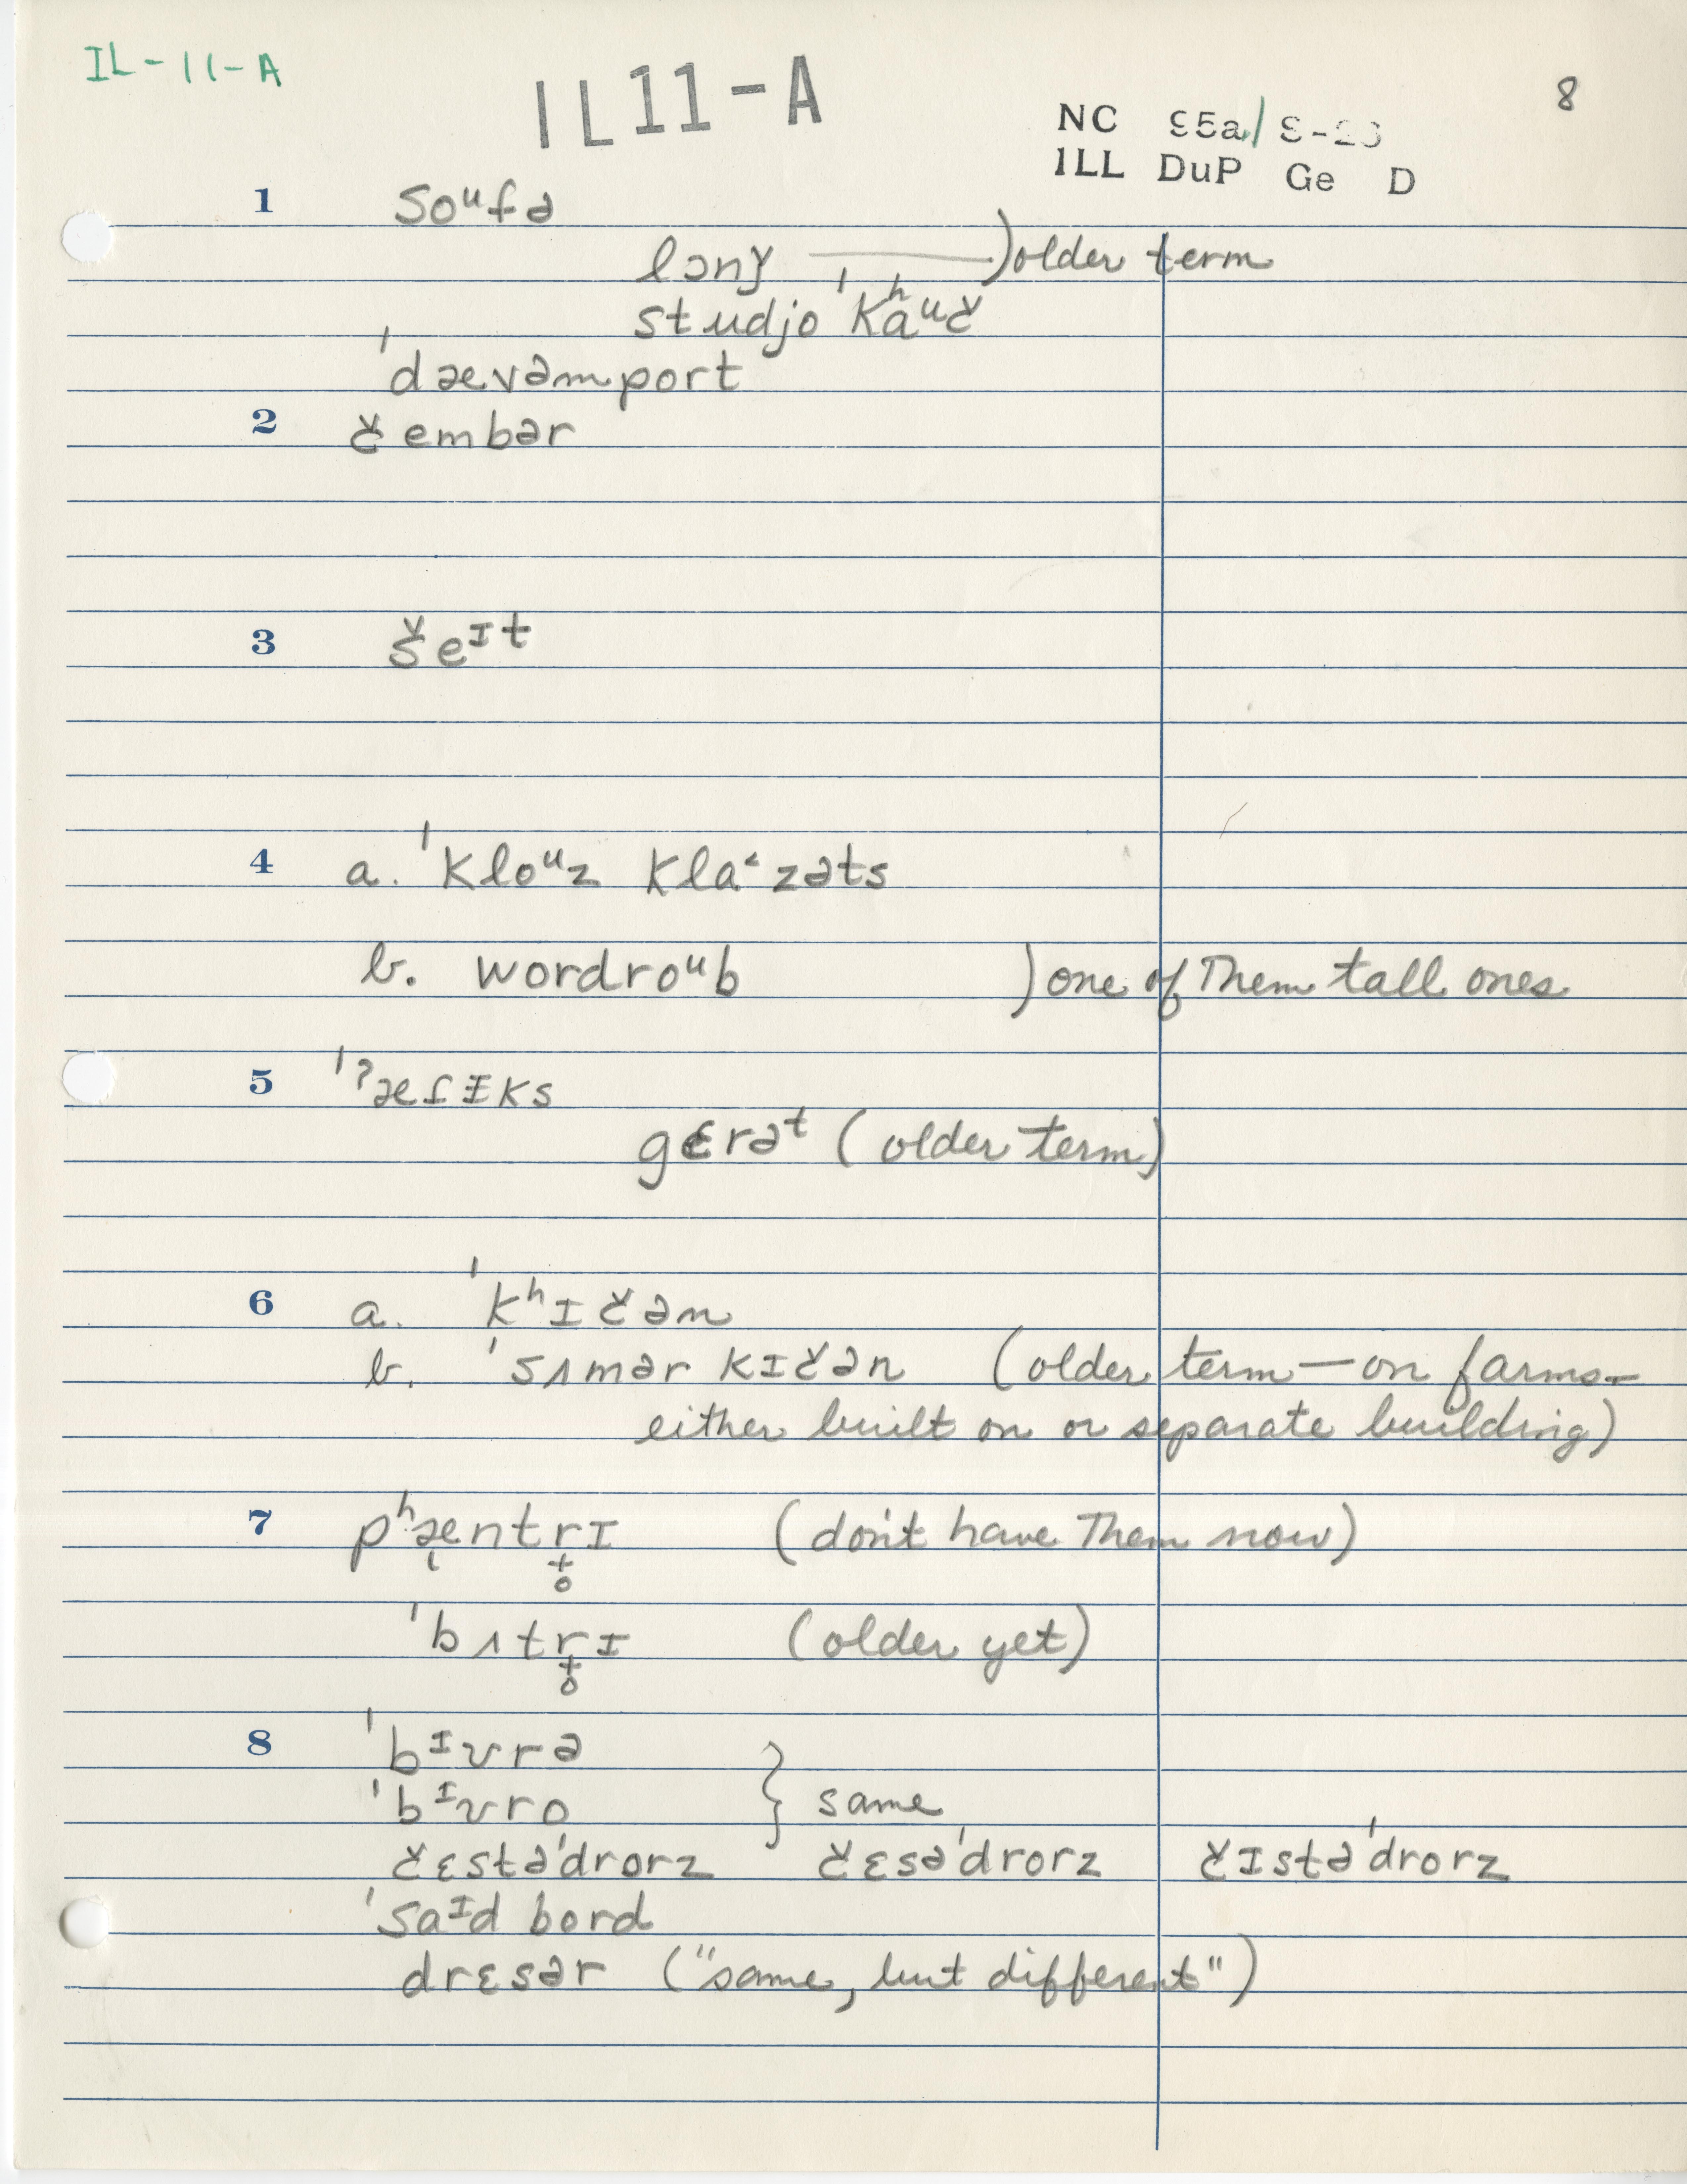 IL-11-A
IL11-A
8
NC 95a/
ILL DuP Ge D
1 soᵘfə
lɔnǰ ——— ) older term
studjo ˈkʰaᵘč
ˈdævəmport
2 čembər
3 šeᶦt
4 a. ˈkloᵘz klaᶻzəts
b. wordroᵘb ) one of Them tall ones
5 ˈˀæfɪks
gɛrəᵗ (older term)
6 a. ˈkʰɪčən
b. ˈsʌmər kɪčən (older term — on farms —
either built on or separate building)
7 pʰæntr̥ɪ (don't have Them now)
ˈbʌtr̥ɪ (older yet)
8 ˈbᶦʊrə
ˈbᶦʊro } same
čɛstəˈdrorz čɛsəˈdrorz čɪstəˈdrorz
ˈsaᶦd bord
drɛsər ("same, but different")